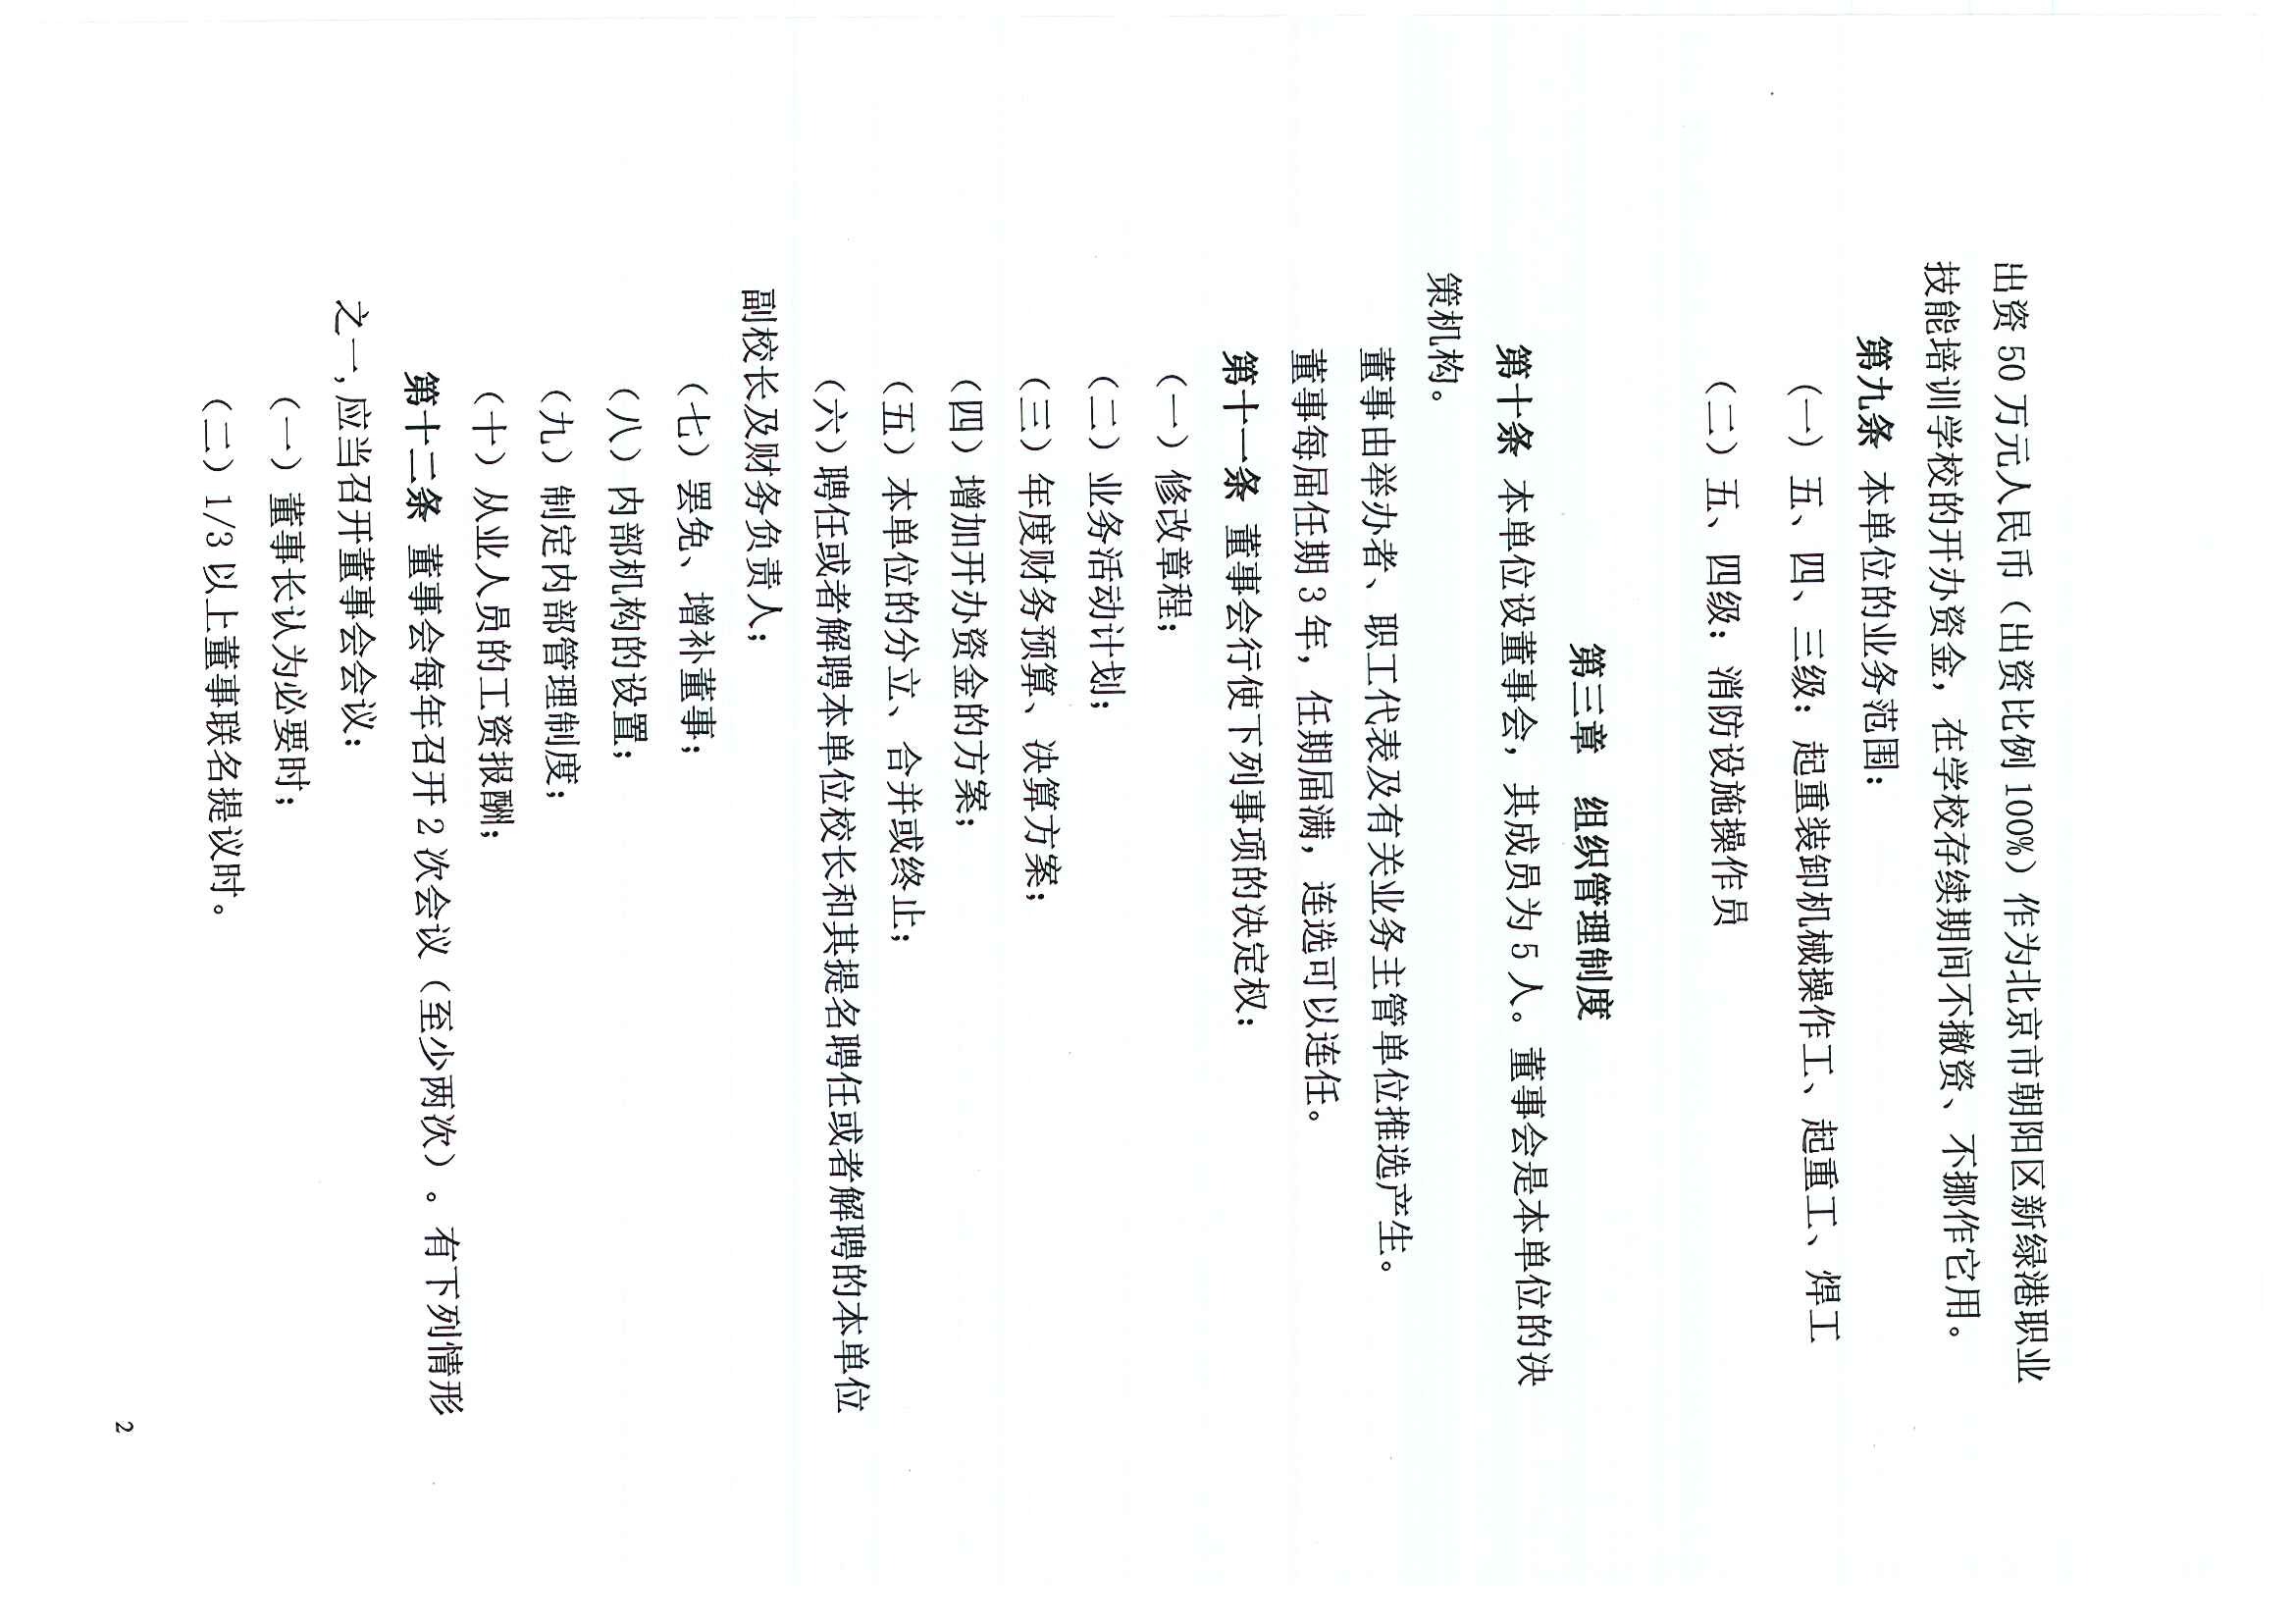 出资 50 万元人民币（出资比例 100%）作为北京市朝阳区新绿港职业
技能培训学校的开办资金，在学校存续期间不撤资、不挪作它用。
第九条 本单位的业务范围：
（一）五、四、三级：起重装卸机械操作工、起重工、焊工
（二）五、四级：消防设施操作员
第三章 组织管理制度
第十条 本单位设董事会，其成员为 5 人。董事会是本单位的决
策机构。
董事由举办者、职工代表及有关业务主管单位推选产生。
董事每届任期 3 年，任期届满，连选可以连任。
第十一条 董事会行使下列事项的决定权：
（一）修改章程；
（二）业务活动计划；
（三）年度财务预算、决算方案；
（四）增加开办资金的方案；
（五）本单位的分立、合并或终止；
（六）聘任或者解聘本单位校长和其提名聘任或者解聘的本单位
副校长及财务负责人；
（七）罢免、增补董事；
（八）内部机构的设置；
（九）制定内部管理制度；
（十）从业人员的工资报酬；
第十二条 董事会每年召开 2 次会议（至少两次）。有下列情形
之一，应当召开董事会会议：
（一）董事长认为必要时；
（二）1/3 以上董事联名提议时。
2